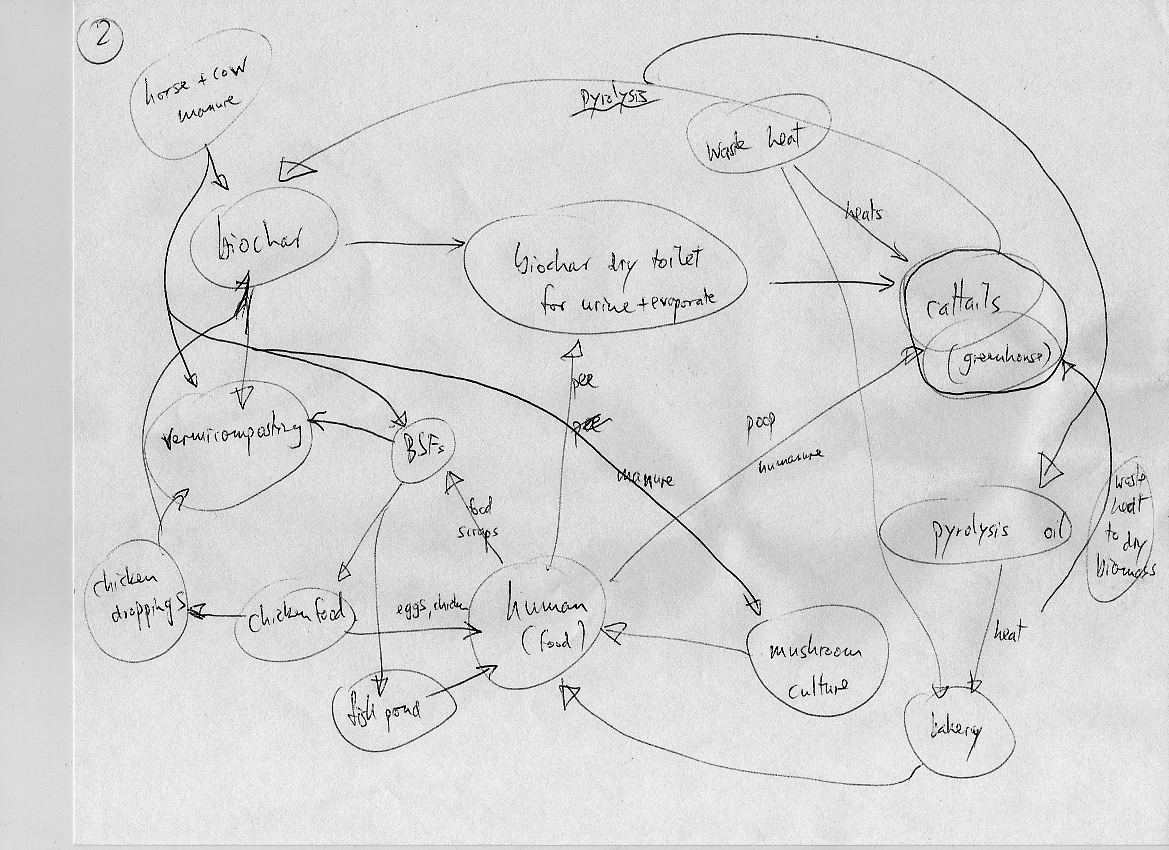 2
horse + cow
manure
pyrolysis
waste heat
heats
biochar
biochar dry toilet
for urine + evaporate
cattails
(greenhouse)
pee
vermicomposting
BSFs
poop
humanure
manure
food
scraps
pyrolysis oil
waste
heat
to dry
biomass
chicken
droppings
chicken food
eggs, chicken
human
(food)
heat
mushroom
culture
fish pond
bakery